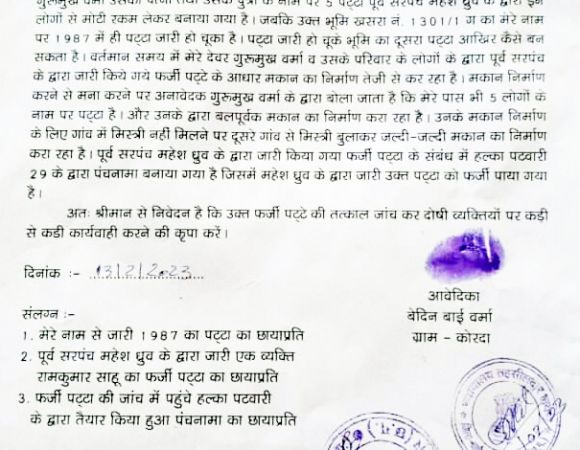 गुरूमुख वर्मा उसकी पत्नी तथा उसके पुत्रो के नाम पर 5 पट्टा पूर्व सरपंच महेश ध्रुव के द्वारा इन
लोगों से मोटी रकम लेकर बनाया गया है। जबकि उक्त भूमि खसरा नं. 1301/1 ग का मेरे नाम
पर 1987 में ही पट्टा जारी हो चूका है। पट्टा जारी हो चूके भूमि का दूसरा पट्टा आखिर कैसे बन
सकता है। वर्तमान समय में मेरे देवर गुरूमुख वर्मा व उसके परिवार के लोगों के द्वारा पूर्व सरपंच
के द्वारा जारी किये गये फर्जी पट्टे के आधार मकान का निर्माण तेजी से कर रहा है। मकान निर्माण
करने से मना करने पर अनावेदक गुरूमुख वर्मा के द्वारा बोला जाता है कि मेरे पास भी 5 लोगों के
नाम पर पट्टा है। और उनके द्वारा बलपूर्वक मकान का निर्माण करा रहा है। उनके मकान निर्माण
के लिए गांव में मिस्त्री नहीं मिलने पर दूसरे गांव से मिस्त्री बुलाकर जल्दी-जल्दी मकान का निर्माण
करा रहा है। पूर्व सरपंच महेश ध्रुव के द्वारा जारी किया गया फर्जी पट्टा के संबंध में हल्का पटवारी
29 के द्वारा पंचनामा बनाया गया है जिसमें महेश ध्रुव के द्वारा जारी उक्त पट्टा को फर्जी पाया गया
है।
अतः श्रीमान से निवेदन है कि उक्त फर्जी पट्टे की तत्काल जांच कर दोषी व्यक्तियों पर कड़ी
से कडी कार्यवाही करने की कृपा करें।
दिनांक :- 13/2/2023
आवेदिका
बेदिन बाई वर्मा
ग्राम - कोरदा
संलग्न :-
1. मेरे नाम से जारी 1987 का पट्टा का छायाप्रति
2. पूर्व सरपंच महेश ध्रुव के द्वारा जारी एक व्यक्ति
रामकुमार साहू का फर्जी पट्टा का छायाप्रति
3. फर्जी पट्टा की जांच में पहुंचे हल्का पटवारी
के द्वारा तैयार किया हुआ पंचनामा का छायाप्रति